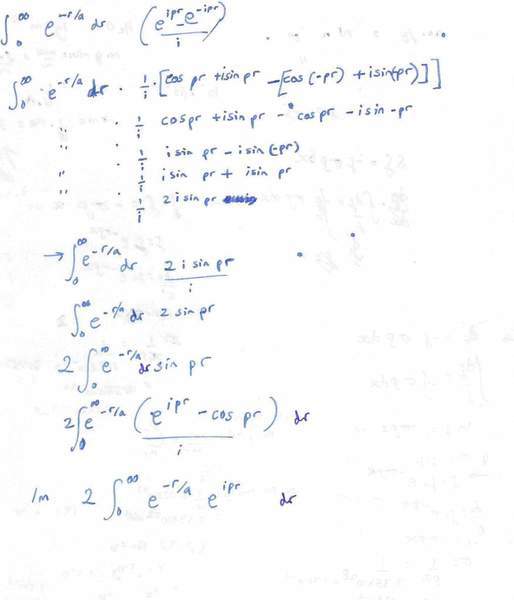 ∫₀^∞ e^{-r/a} dr (e^{ipr} - e^{-ipr})/i
∫₀^∞ e^{-r/a} dr · 1/i · [cos pr + isin pr - [cos (-pr) + isin(-pr)]]
" · 1/i cos pr + isin pr - cos pr - isin -pr
" · 1/i i sin pr - i sin (-pr)
" · 1/i i sin pr + i sin pr
" · 1/i 2 i sin pr
→ ∫₀^∞ e^{-r/a} dr 2 i sin pr / i
∫₀^∞ e^{-r/a} dr 2 sin pr
2 ∫₀^∞ e^{-r/a} dr sin pr
2 ∫₀^∞ e^{-r/a} (e^{ipr} - cos pr)/i dr
Im 2 ∫₀^∞ e^{-r/a} e^{ipr} dr